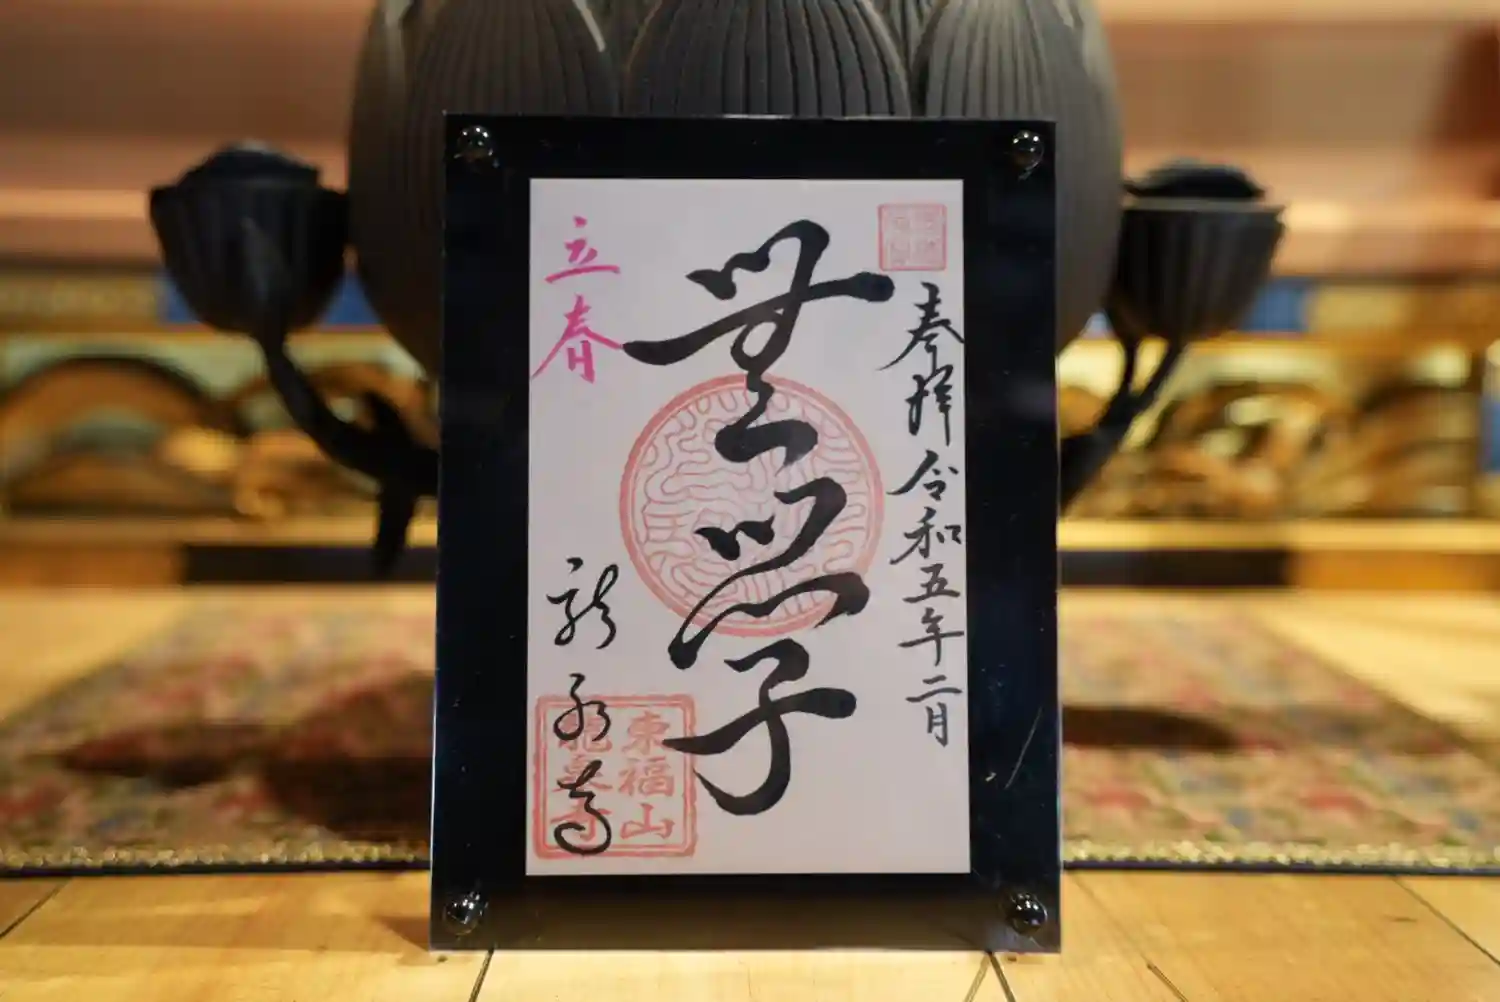 奉拝 令和五年二月
無学
立春
龍泉寺
東福山
龍泉寺